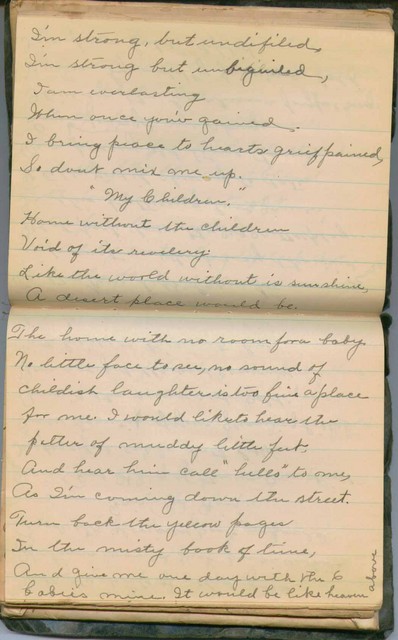 I'm strong, but undifiled,
I'm strong but unbeguiled,
I am everlasting
When once you'v gained.
I bring peace to hearts grief pained,
So dont mix me up.
"My Children."
Home without the children
Void of its revelery.
Like the world without is sunshine,
A desert place would be.
The home with no room for a baby
No little face to see, no sound of
childish laughter is too fine a place
for me. I would like to hear the
petter of muddy little feet,
And hear him call "hello" to me,
As I'm coming down the street.
Turn back the yellow pages
In the misty book of time,
And give me one day with the 6
babies mine. It would be like heaven
above